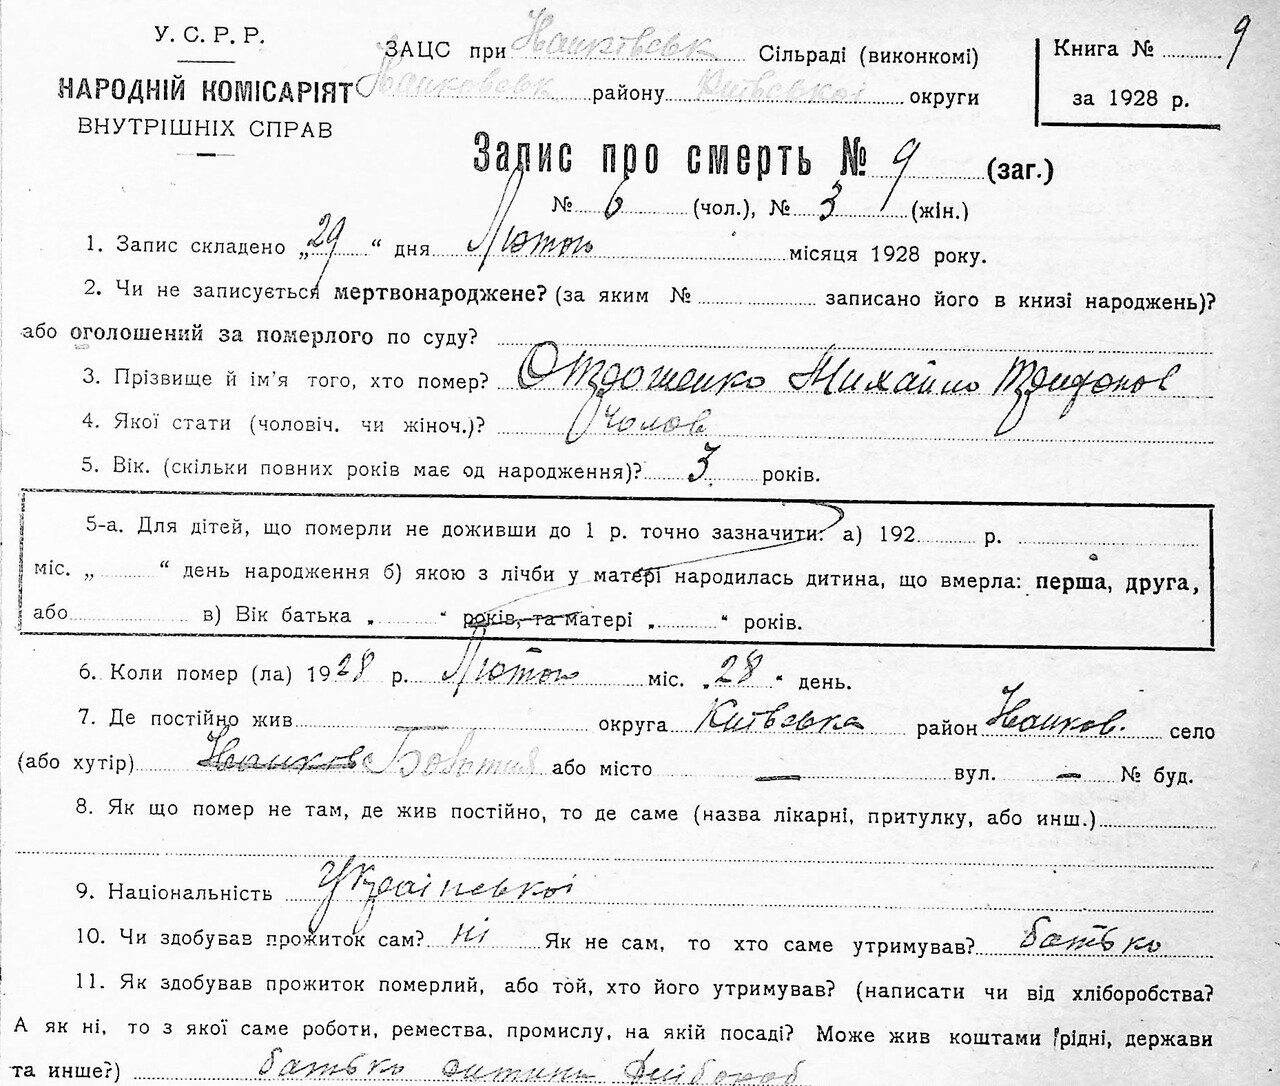 У. С. Р. Р.
НАРОДНІЙ КОМІСАРІЯТ
ВНУТРІШНІХ СПРАВ
ЗАЦС при Іванківськ Сільраді (виконкомі)
Іванковськ району Київської округи
Книга № 9
за 1928 р.
Запис про смерть № 9 (заг.)
№ 6 (чол.), № 3 (жін.)
1. Запис складено „29“ дня Лютого місяця 1928 року.
2. Чи не записується мертвонароджене? (за яким № записано його в книзі народжень)?
або оголошений за померлого по суду?
3. Прізвище й ім'я того, хто помер? Михайло
4. Якої стати (чоловіч. чи жіноч.)? Чолов
5. Вік. (скільки повних років має од народження)? 3 років.
5-а. Для дітей, що померли не доживши до 1 р. точно зазначити: а) 192 р.
міс. „ “ день народження б) якою з лічби у матері народилась дитина, що вмерла: перша, друга,
або в) Вік батька „ “ років, та матері „ “ років.
6. Коли помер (ла) 1928 р. Лютого міс. „28“ день.
7. Де постійно жив округа Київська район Іванков. село
(або хутір) або місто — вул. — № буд.
8. Як що помер не там, де жив постійно, то де саме (назва лікарні, притулку, або инш.)
9. Національність Української
10. Чи здобував прожиток сам? ні Як не сам, то хто саме утримував? батько
11. Як здобував прожиток померлий, або той, хто його утримував? (написати чи від хліборобства?
А як ні, то з якої саме роботи, ремества, промислу, на якій посаді? Може жив коштами рідні, держави
та инше?) батько дитини хлібороб